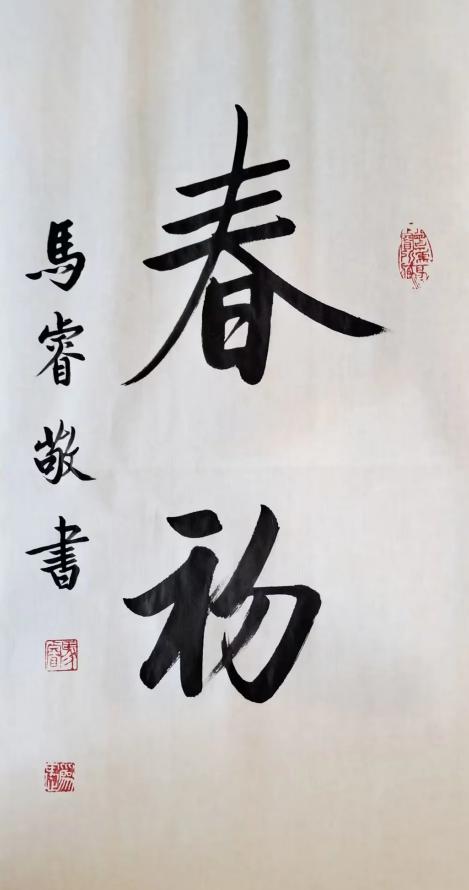 春初
馬睿敬書